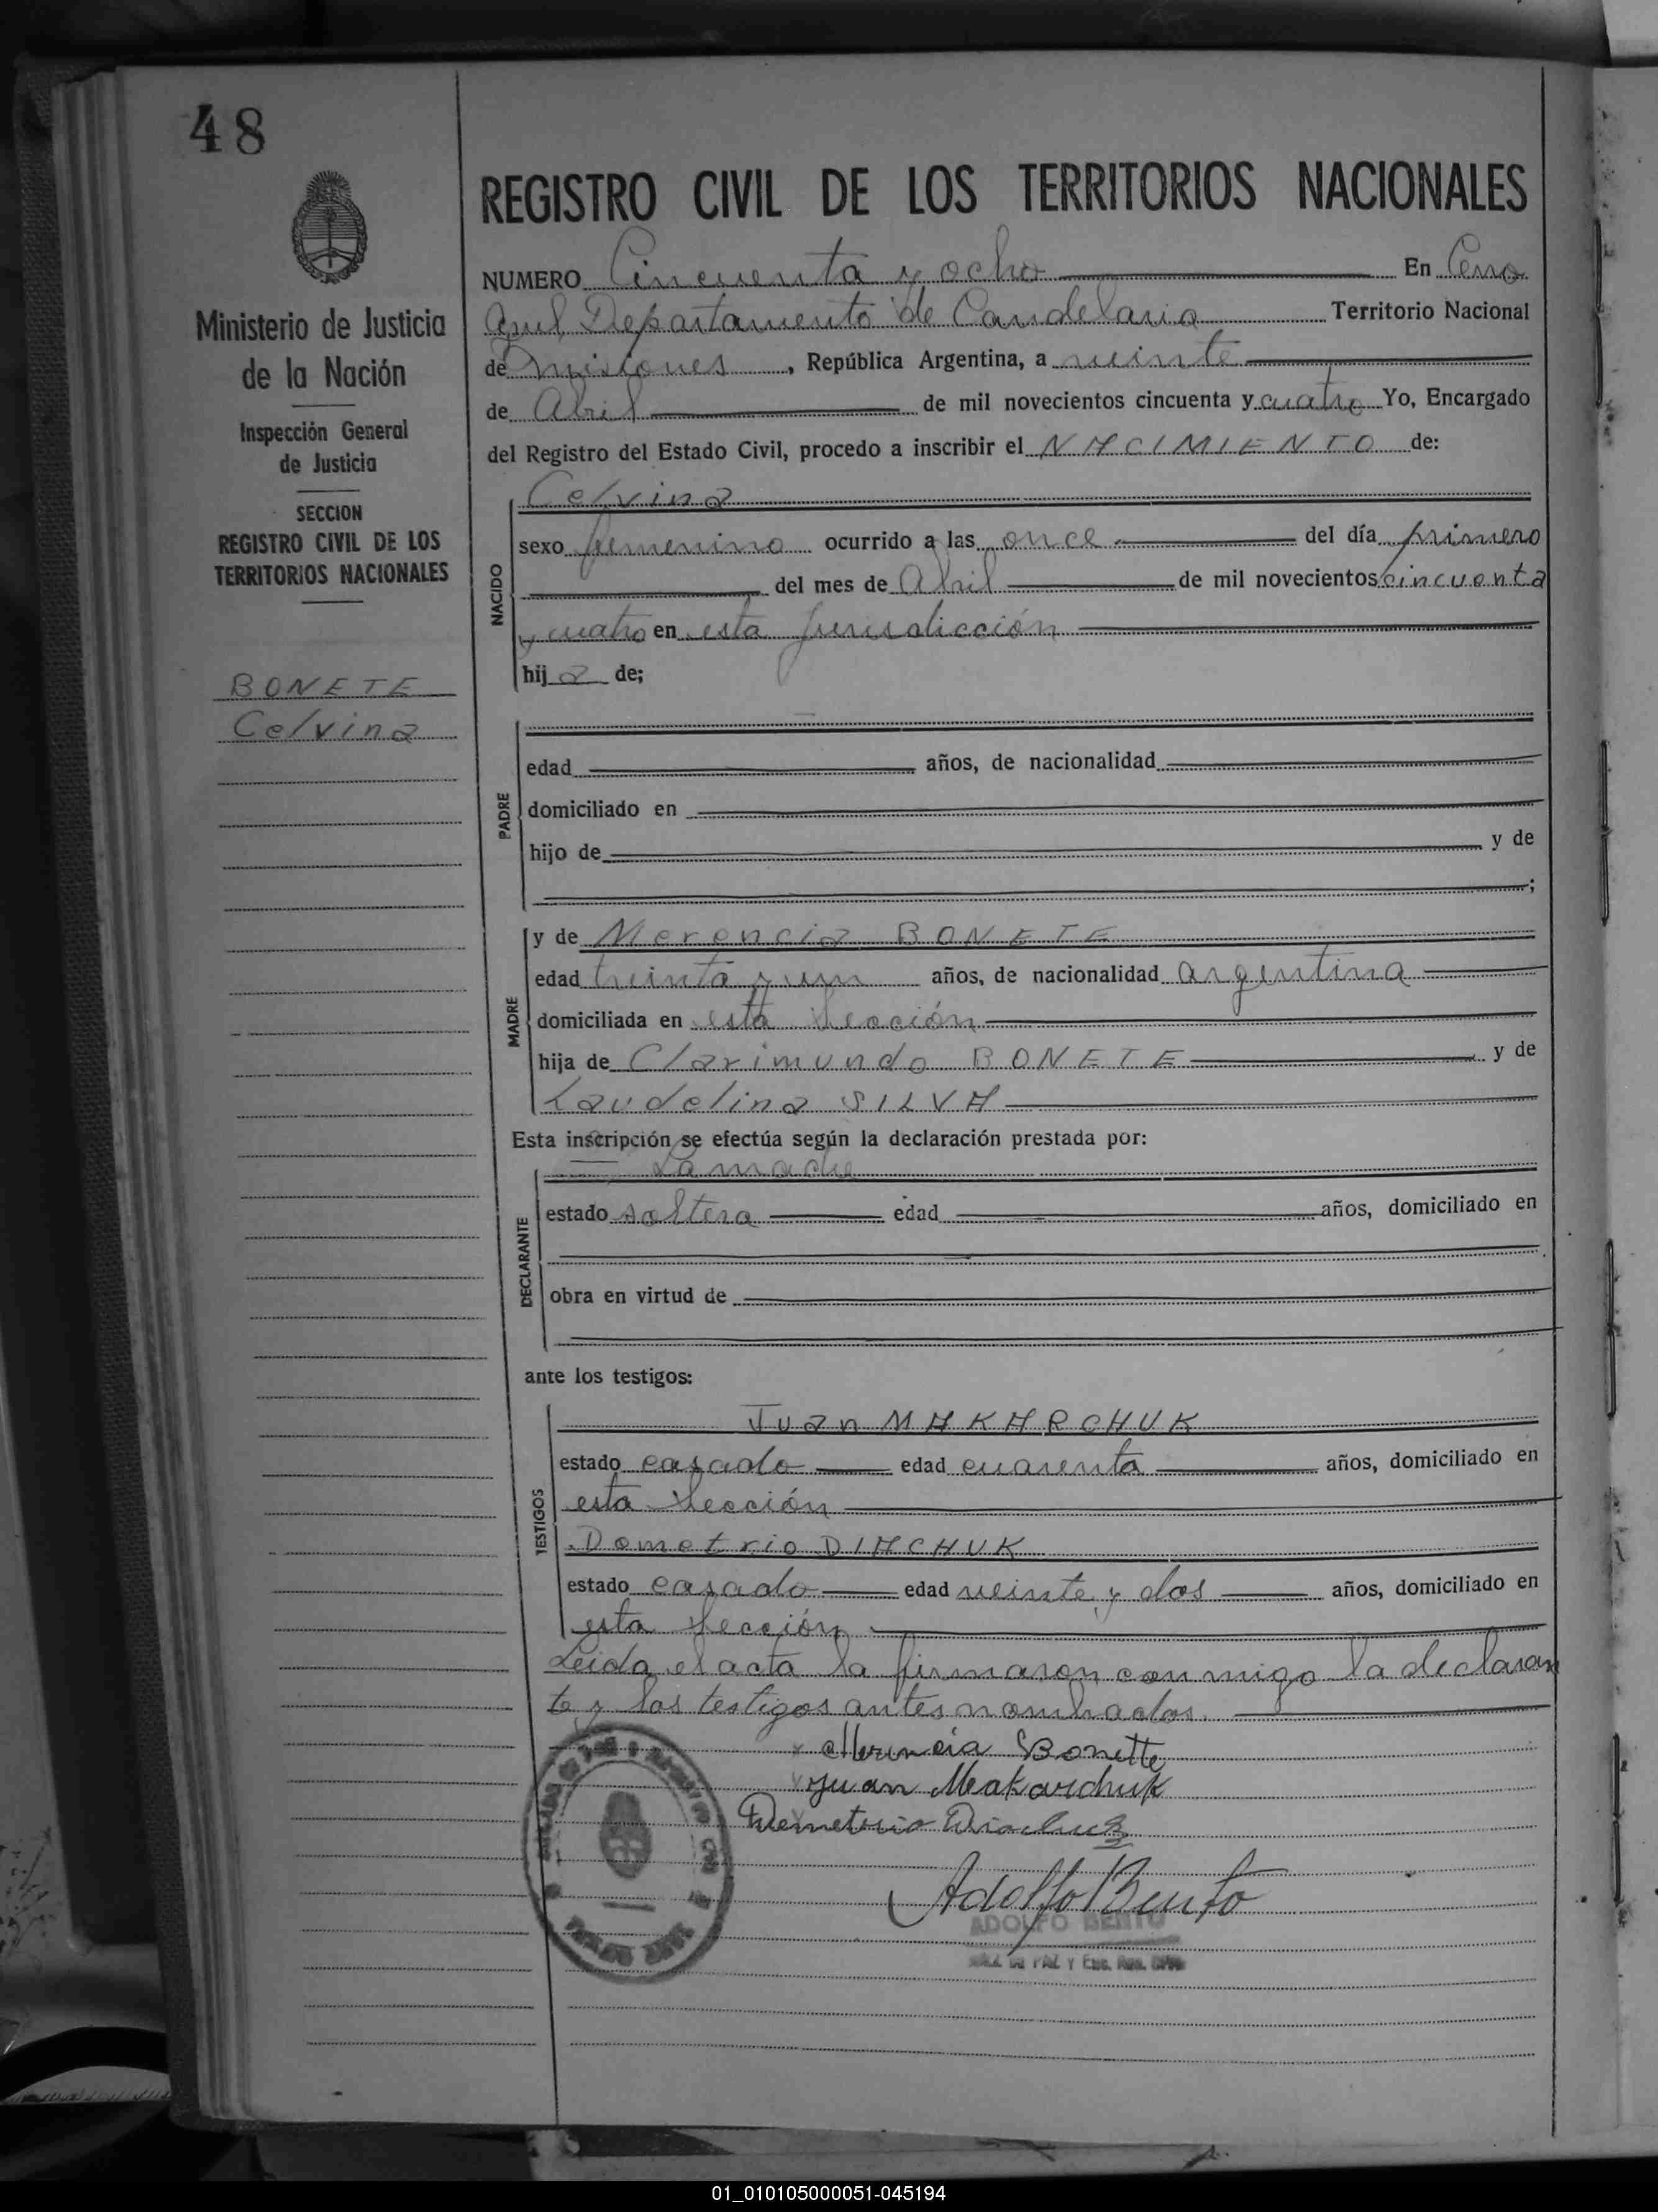 48
Ministerio de Justicia
de la Nación
Inspección General
de Justicia
SECCION
REGISTRO CIVIL DE LOS
TERRITORIOS NACIONALES
BONETE
Celvina
REGISTRO CIVIL DE LOS TERRITORIOS NACIONALES
NUMERO Cincuenta y ocho En Cerro
Azul Departamento de Candelaria Territorio Nacional
de Misiones, República Argentina, a veinte
de Abril de mil novecientos cincuenta y cuatro Yo, Encargado
del Registro del Estado Civil, procedo a inscribir el NACIMIENTO de:
NACIDO
Celvina
sexo femenino ocurrido a las once del día primero
del mes de Abril de mil novecientos cincuenta
y cuatro en esta jurisdicción
hija de;
PADRE
edad años, de nacionalidad
domiciliado en
hijo de y de
;
MADRE
y de Merencia BONETE
edad treinta y un años, de nacionalidad argentina
domiciliada en esta Sección
hija de Clarimundo BONETE y de
Laudelina SILVA
Esta inscripción se efectúa según la declaración prestada por:
DECLARANTE
La madre
estado soltera edad años, domiciliado en
obra en virtud de
ante los testigos:
TESTIGOS
Juan MAKARCHUK
estado casado edad cuarenta años, domiciliado en
esta Sección
Demetrio DIACHUK
estado casado edad veinte y dos años, domiciliado en
esta Sección
Leida el acta la firmaron conmigo la declaran
te y los testigos antes nombrados.
x Merencia Bonette
x Juan Makarchuk
Demetrio Diachuk
Adolfo Bento
ADOLFO BENTO
JUEZ DE PAZ Y ENC. REG. CIVIL
01_010105000051-045194